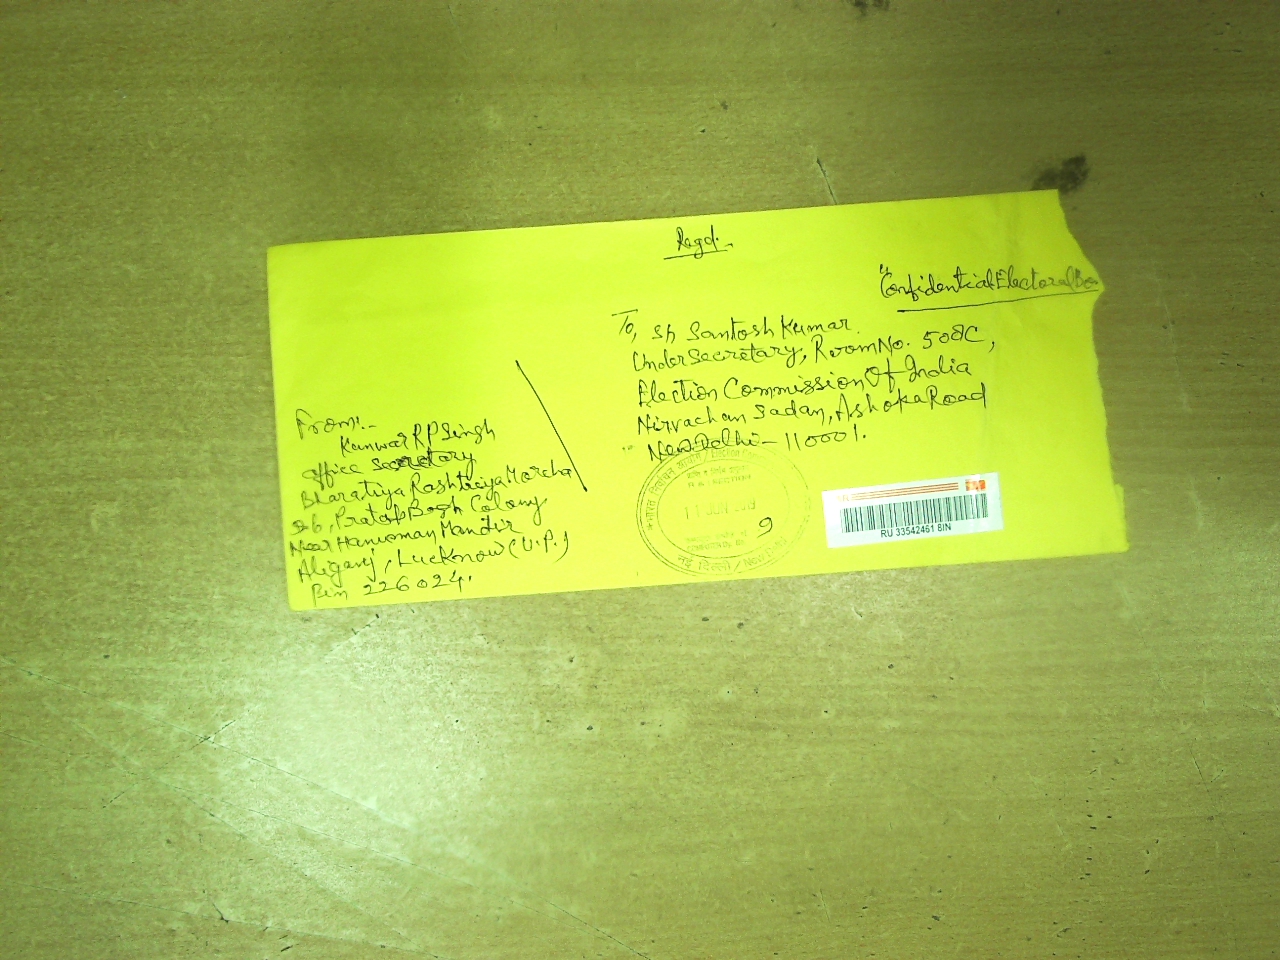 Regd.
"Confidential Electoral Bo
To, Sh Santosh Kumar.
Under Secretary, Room No. 508C,
Election Commission Of India
Nirvachan Sadan, Ashoka Road
New Delhi - 110001.
From:-
Kunwar RP Singh
Office Secretary
Bharatiya Rashtriya Morcha
Pratap Bagh Colony
Near Hanuman Mandir
Aliganj, Lucknow (U.P.)
Pin 226024.
भारत निर्वाचन आयोग / Election
11 JUN 2019
9
नई दिल्ली / New Delhi
RU 33542461 8IN